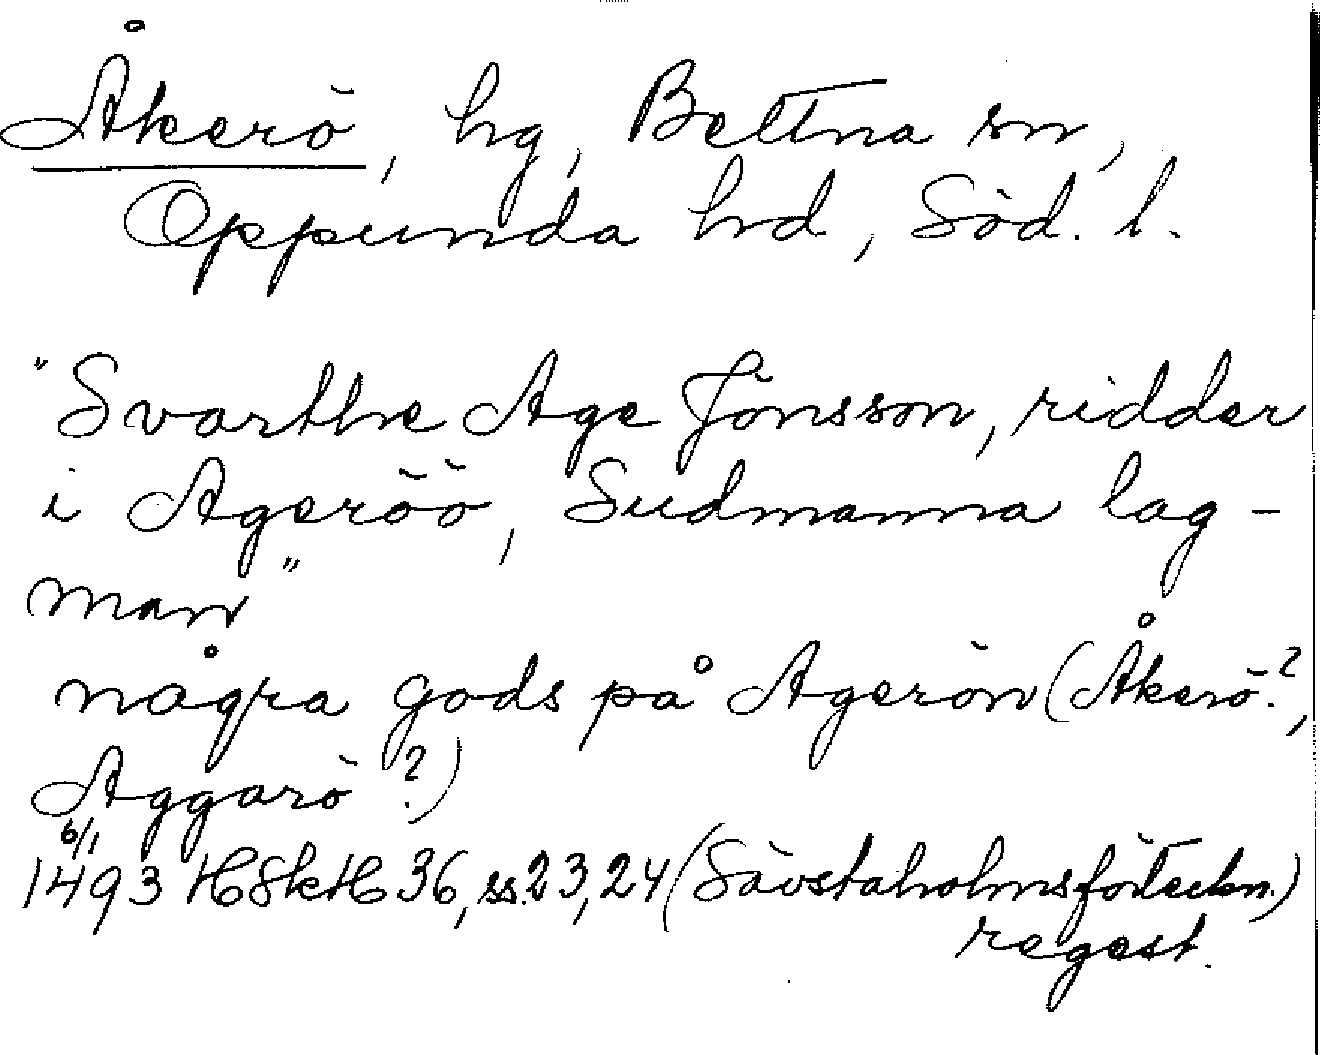 Åkerö, hg, Bettna sn,
Oppunda hd, Söd. l.
"Svarthe Age Jönsson, ridder
i Ageröö, Sudmanna lag-
man"
några gods på Agerön (Åkerö?,
Aggarö?)
6/1
1493 HSkH 36, ss. 23, 24 (Sävstaholmsförteckn.)
regest.